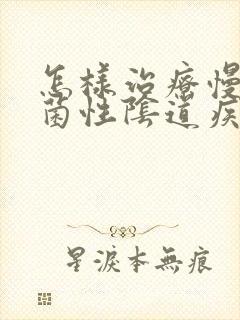 怎樣治療慢
菌性陰道疾
星淚本無痕